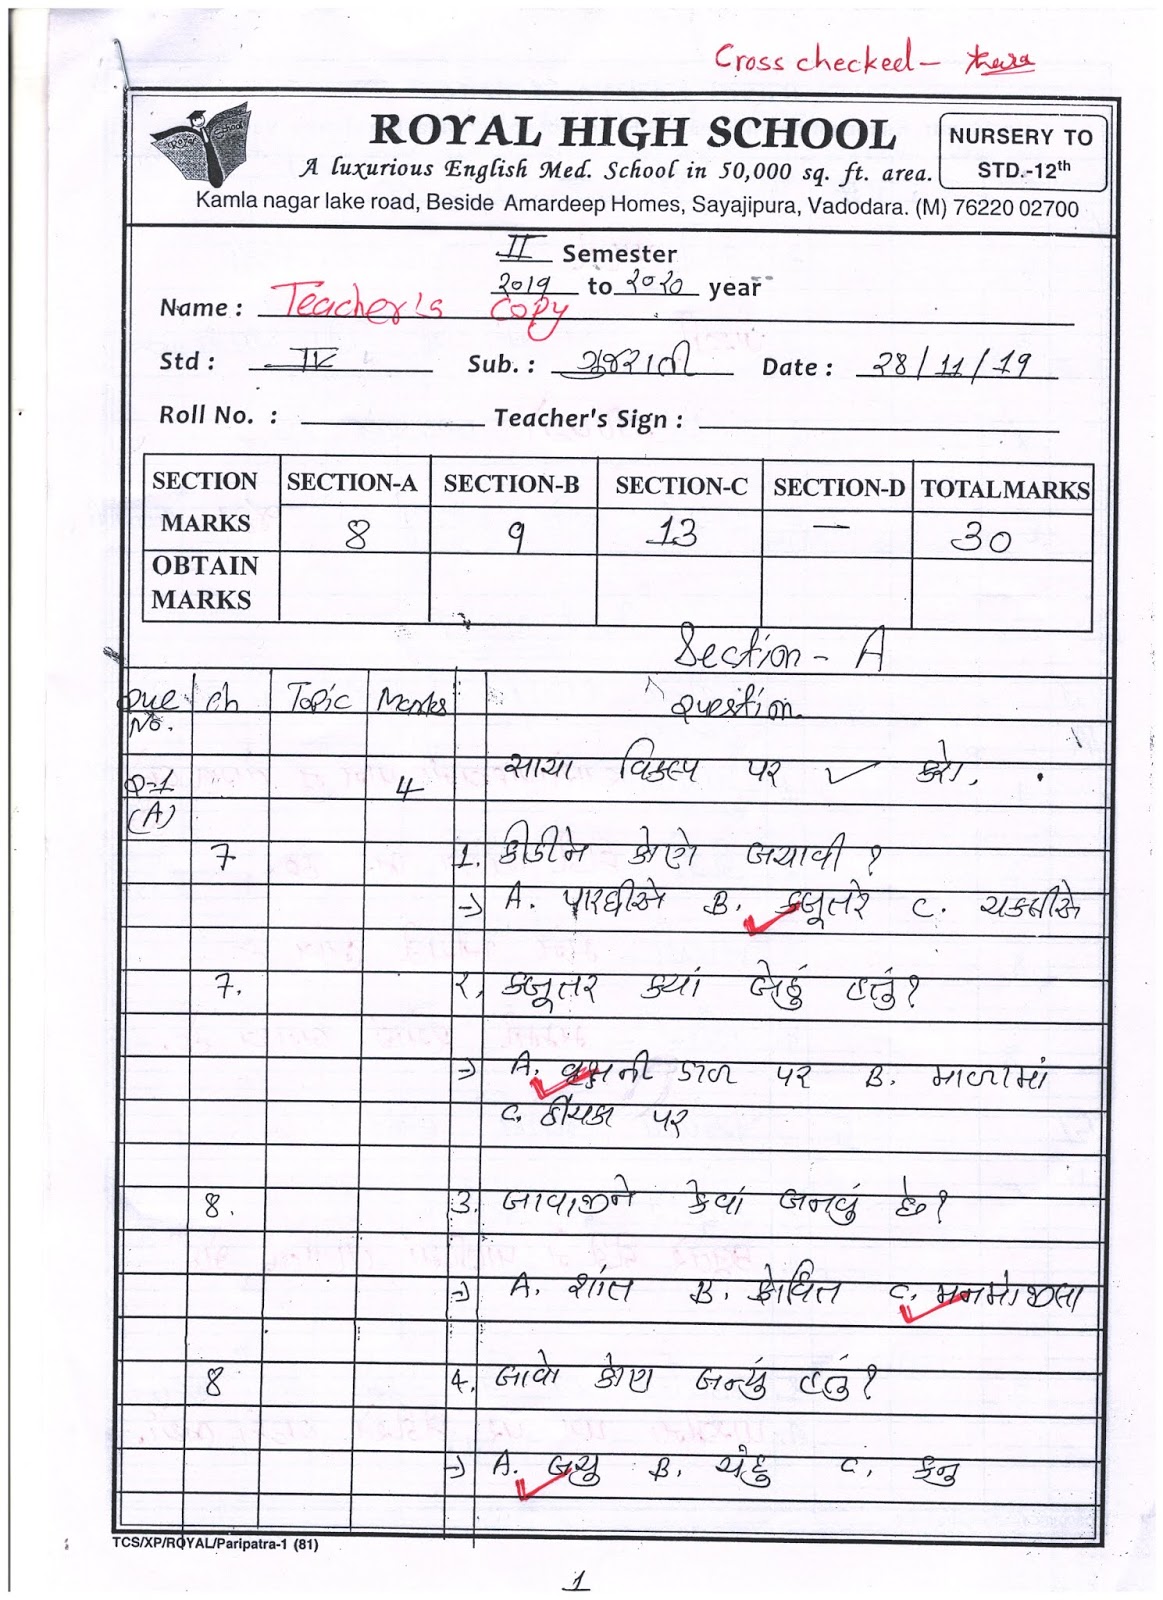 Cross checked -
ROYAL HIGH SCHOOL
NURSERY TO
STD.-12th
A luxurious English Med. School in 50,000 sq. ft. area.
Kamla nagar lake road, Beside Amardeep Homes, Sayajipura, Vadodara. (M) 76220 02700
II Semester
૨૦૧૯ to ૨૦૨૦ year
Name : Teacher's Copy
Std : IV Sub. : ગુજરાતી Date : ૨8/11/19
Roll No. : Teacher's Sign :
SECTION SECTION-A SECTION-B SECTION-C SECTION-D TOTALMARKS
MARKS 8 9 13 — 30
OBTAIN
MARKS
Section - A
Que No. ch Topic Marks Question.
Q-1 (A) 4 સાચા વિકલ્પ પર ✓ કરો.
7 1. કીડીને કોણે બચાવી ?
→ A. પારધીએ B. કબૂતરે C. ચકલીએ
7. ૨. કબૂતર ક્યાં બેઠું હતું ?
→ A. વૃક્ષની ડાળ પર B. માળામાં
C. હીંચકા પર
8. 3. બાવાજીને કેવાં બનવું છે ?
→ A. શાંત B. ક્રોધિત C. મનમોજીલા
8 4. બાવો કોણ બન્યું હતું ?
→ A. બચુ B. ચંદુ C. કનુ
TCS/XP/ROYAL/Paripatra-1 (81)
1